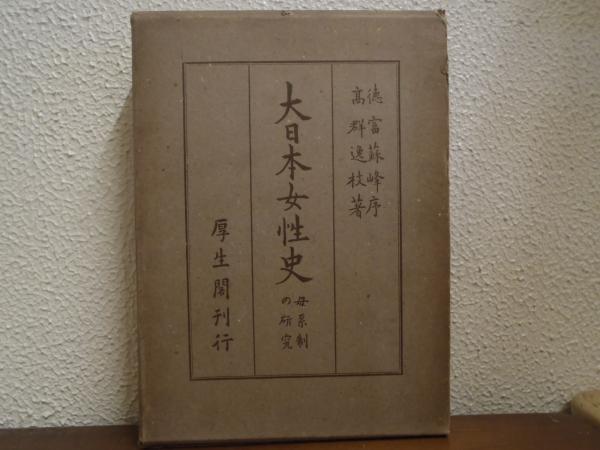 徳富蘇峰序
高群逸枝著
大日本女性史
母系制
の研究
厚生閣刊行